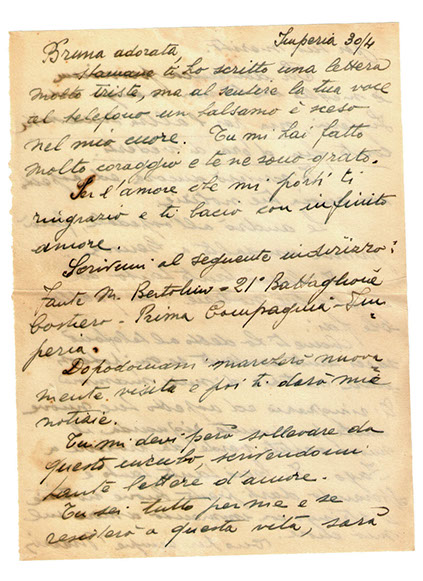 Bruna adorata Imperia 30/4
Stamane ti ho scritto una lettera
molto triste, ma al sentire la tua voce
al telefono un balsamo è sceso
nel mio cuore. Tu mi hai fatto
molto coraggio e te ne sono grato.
Per l'amore che mi porti ti
ringrazio e ti bacio con infinito
amore.
Scrivimi al seguente indirizzo:
Fante M. Bertolino - 21° Battaglione
Costiero - Prima Compagnia - Im-
peria.
Dopodomani marcherò nuova
mente visita e poi ti darò mie
notizie.
Tu mi devi però sollevare da
questo incubo, scrivendomi
tante lettere d'amore.
Tu sei tutto per me e se
resisterò a questa vita, sarà